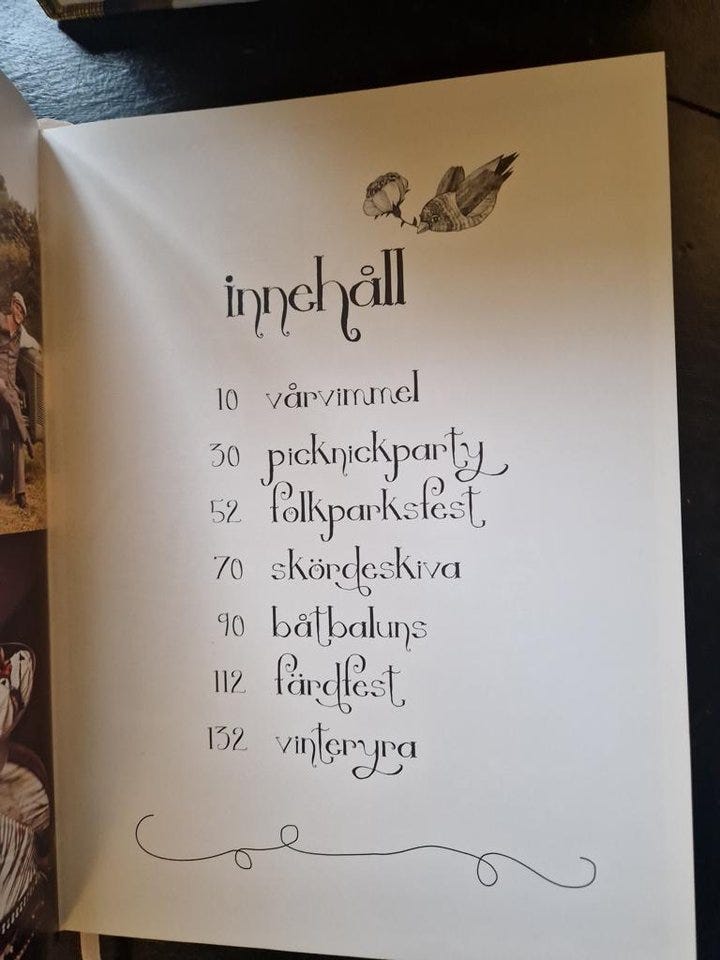 innehåll
10 vårvimmel
30 picknickparty
52 folkparksfest
70 skördeskiva
90 båtbaluns
112 färdfest
132 vinteryra